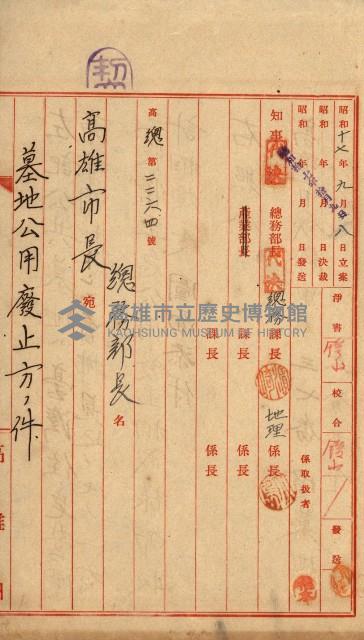 昭和十七年九月八日立案
昭和　年　月　日決裁
昭和　年　月　日發送
淨書
校合
發送
係取扱者
知事
總務部長
總務課長
地理係長
産業部長
課長
係長
課長
係長
高總第二二六四號
總務部長名
高雄市長宛
墓地公用廢止方ノ件
高雄市立歷史博物館
KAOHSIUNG MUSEUM OF HISTORY
高雄州